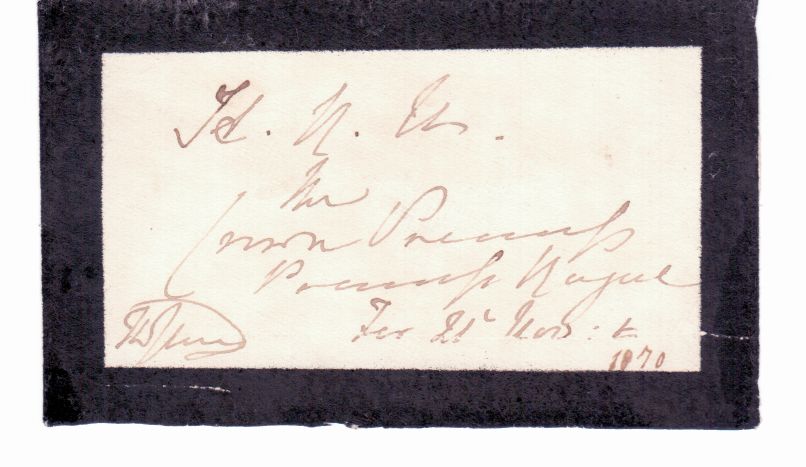 H. R. H.
The
Crown Princess
Princess Royal
For 21st Nov:
1870